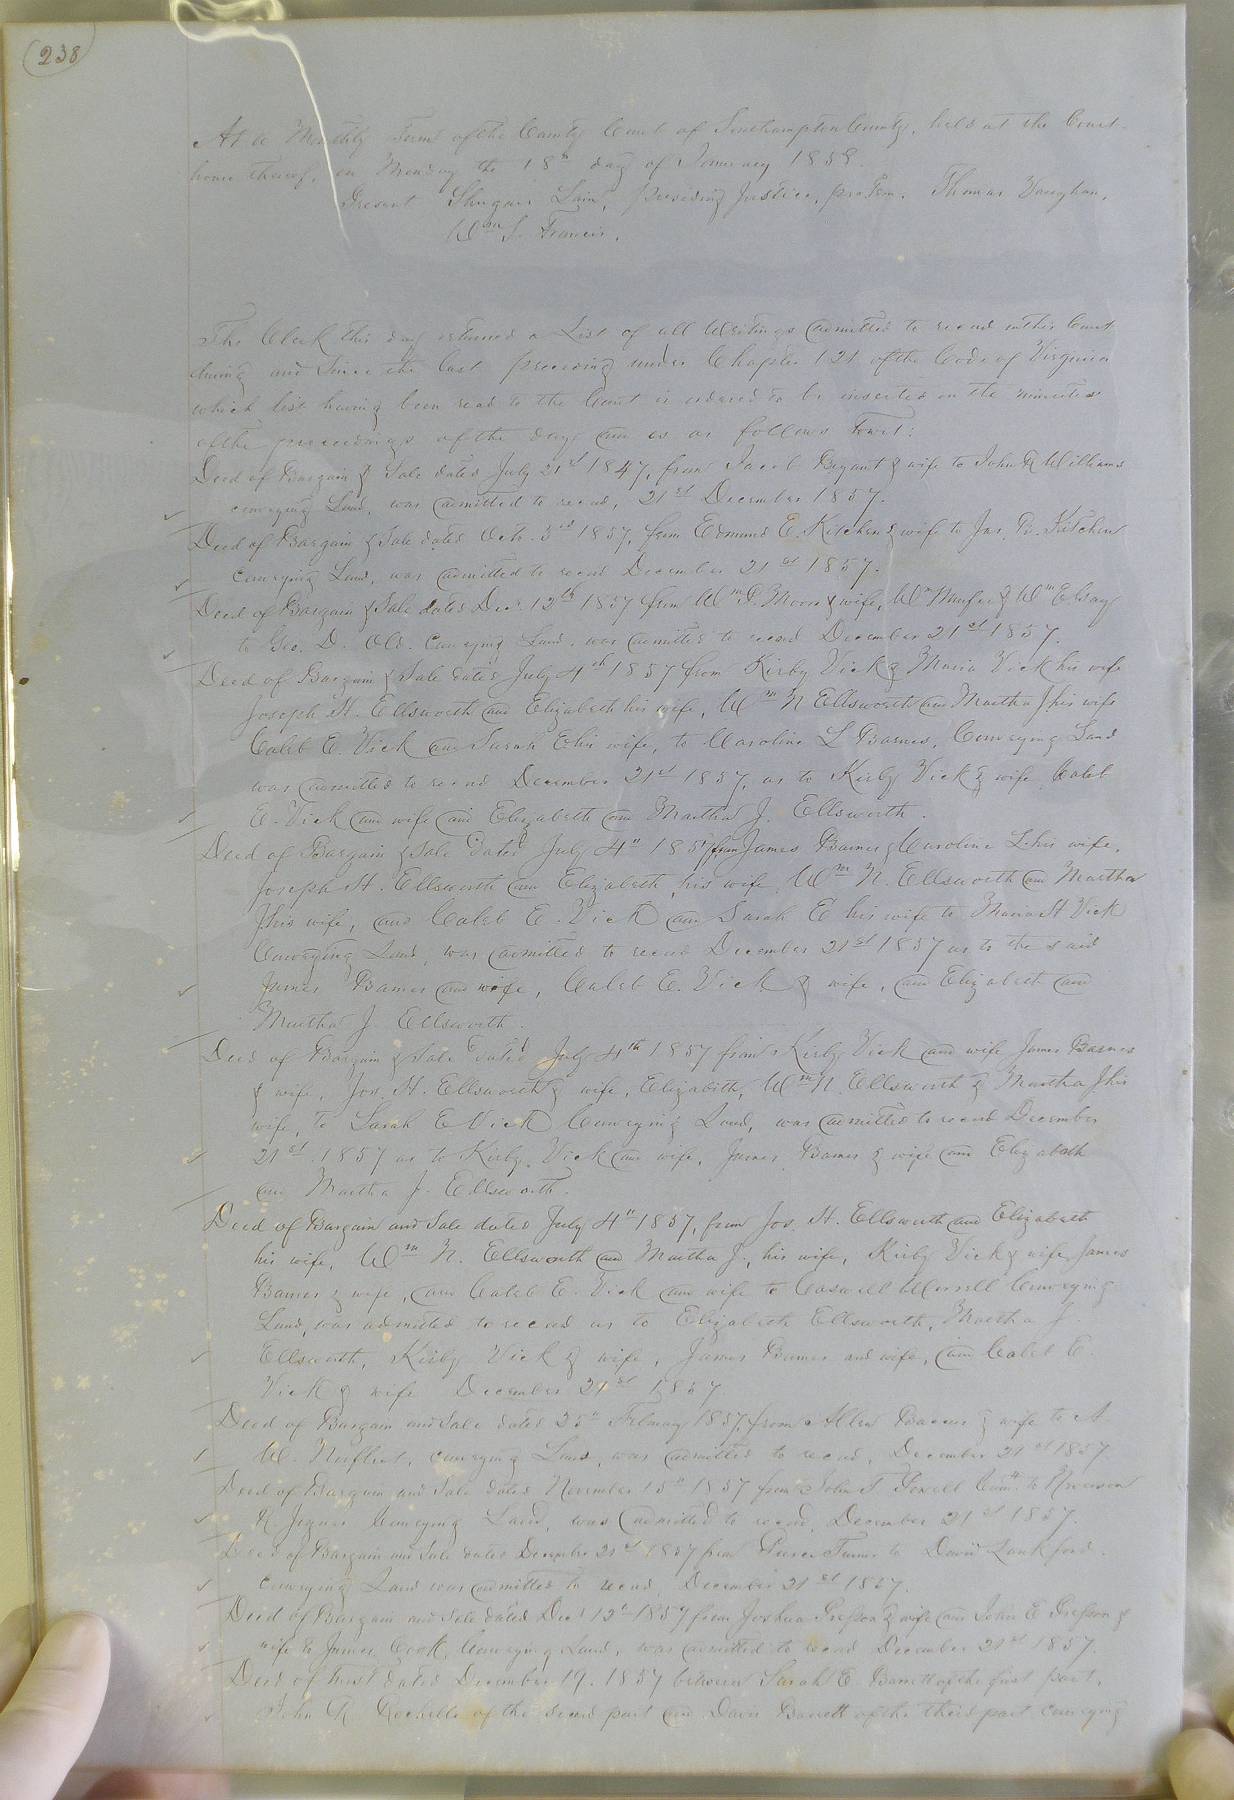 238
At a Monthly Term of the County Court of Southampton County, held at the Court
house thereof, on Monday the 18th day of January 1858.
Present Shugars Lain, Presiding Justice, protem. Thomas Vaughan,
Wm S. Francis.
The Clerk this day returned a List of all Writings admitted to record in this Court
during and Since the last preceding under Chapter 121 of the Code of Virginia
which list having been read to the Court is ordered to be inserted on the minutes
of the proceedings of the day and is as follows towit:
Deed of Bargain & Sale dated July 21st 1847, from Jacob Bryant & wife to John R Williams
conveying Land, was admitted to record, 21st December 1857.
Deed of Bargain & Sale dated Octo. 3rd 1857, from Edmund E. Kitchen & wife to Jas. B. Kitchen
Conveying Land, was admitted to record December 21st 1857.
Deed of Bargain & Sale dated Decr 12th 1857 from Wm P. Moore & wife, Wm & Wm E
to Geo. D. Old. Conveying Land, was admitted to record December 21st 1857.
Deed of Bargain & Sale dated July 4th 1857 from Kirby Vick & Maria Vick his wife
Joseph H. Ellsworth and Elizabeth his wife, Wm N Ellsworth and Martha J his wife
Caleb E. Vick and Sarah E his wife, to Caroline L Barnes, Conveying Land
was admitted to record December 21st 1857, as to Kirby Vick & wife, Caleb
E. Vick and wife and Elizabeth and Martha J. Ellsworth.
Deed of Bargain & Sale dated July 4th 1857 from James Barnes & Caroline L. his wife,
Joseph H. Ellsworth and Elizabeth, his wife, Wm N. Ellsworth and Martha
J his wife, and Caleb E. Vick and Sarah E his wife to Maria H Vick
Conveying Land, was admitted to record December 21st 1857 as to the said
James Barnes and wife, Caleb E. Vick & wife, and Elizabeth and
Martha J. Ellsworth.
Deed of Bargain & Sale dated July 4th 1857 from Kirby Vick and wife James Barnes
& wife, Jos. H. Ellsworth & wife, Elizabeth, Wm N. Ellsworth & Martha J his
wife, to Sarah E Vick Conveying Land, was admitted to record December
21st 1857 as to Kirby Vick and wife, James Barnes & wife and Elizabeth
and Martha J. Ellsworth.
Deed of Bargain and Sale dated July 4th 1857, from Jos. H. Ellsworth and Elizabeth
his wife, Wm N. Ellsworth and Martha J., his wife, Kirby Vick & wife, James
Barnes & wife, and Caleb E. Vick and wife to Caswell Worrell Conveying
Land, was admitted to record as to Elizabeth Ellsworth, Martha J.
Ellsworth, Kirby Vick & wife, James Barnes and wife, and Caleb E.
Vick & wife December 21st 1857.
Deed of Bargain and Sale dated 25th February 1857, from Allen & wife to A.
W. Norfleet, conveying Land, was admitted to record, December 21st 1857
Deed of Bargain and Sale dated November 15th 1857 from John T. Sewell to
R. Joyner Conveying Land, was admitted to record, December 21st 1857.
Deed of Bargain and Sale dated December 21st 1857 from Turner to David Lankford.
conveying Land was admitted to record, December 21st 1857.
Deed of Bargain and Sale dated Decr 12th 1857 from Joshua Presson & wife and John E Presson &
wife to James Cook, Conveying Land, was admitted to record December 21st 1857.
Deed of trust dated December 19. 1857 between Sarah E. Barrett of the first part,
John R. Rochelle of the second part and Davis Barrett of the third part conveying